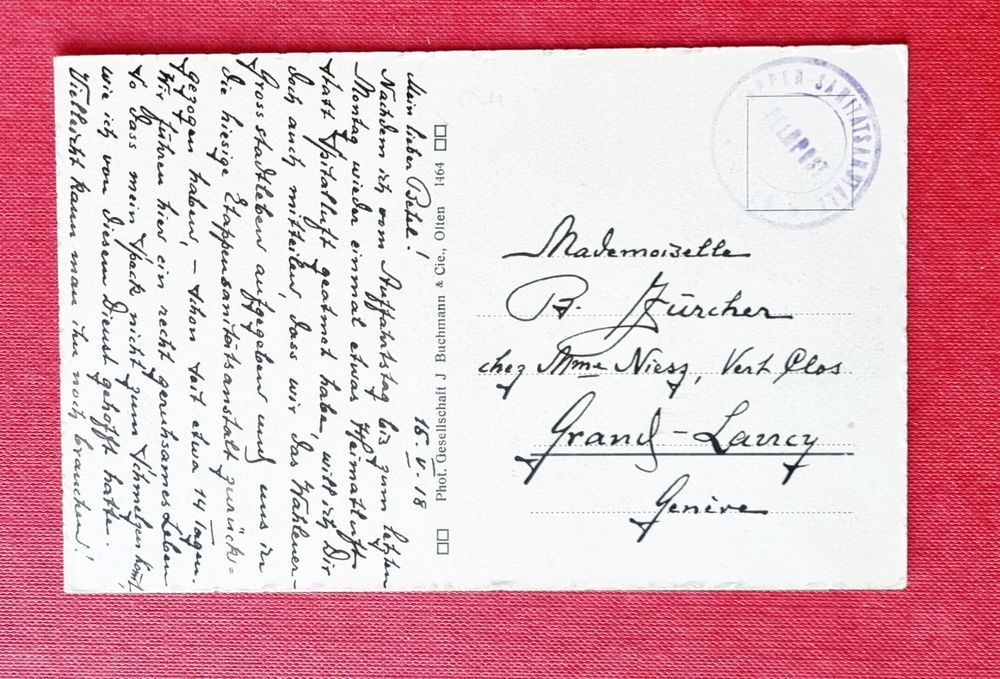 15-V-18
Mein lieber Bethel!
Nachdem ich vom Auffahrtstag bis zum letzten
Montag wieder einmal etwas Heimatluft
statt Spitalluft geatmet habe, will ich Dir
doch auch mitteilen, dass wir das
Grossstadtleben aufgegeben und uns in
die hiesige Etappensanitätsanstalt zurück=
gezogen haben, - schon seit etwa 14 Tagen.
Wir führen hier ein recht geruhsames Leben
so dass mein Speck nicht zum Schmelzen kommt,
wie ich von diesem Dienst gehofft hatte.
Vielleicht kann man ihn noch brauchen!
Phot. Gesellschaft J Buchmann & Cie., Olten 1464
FELDPOST
Mademoiselle
B. Zürcher
chez Mme Niess, Vert Clos
Grand-Lancy
Genève